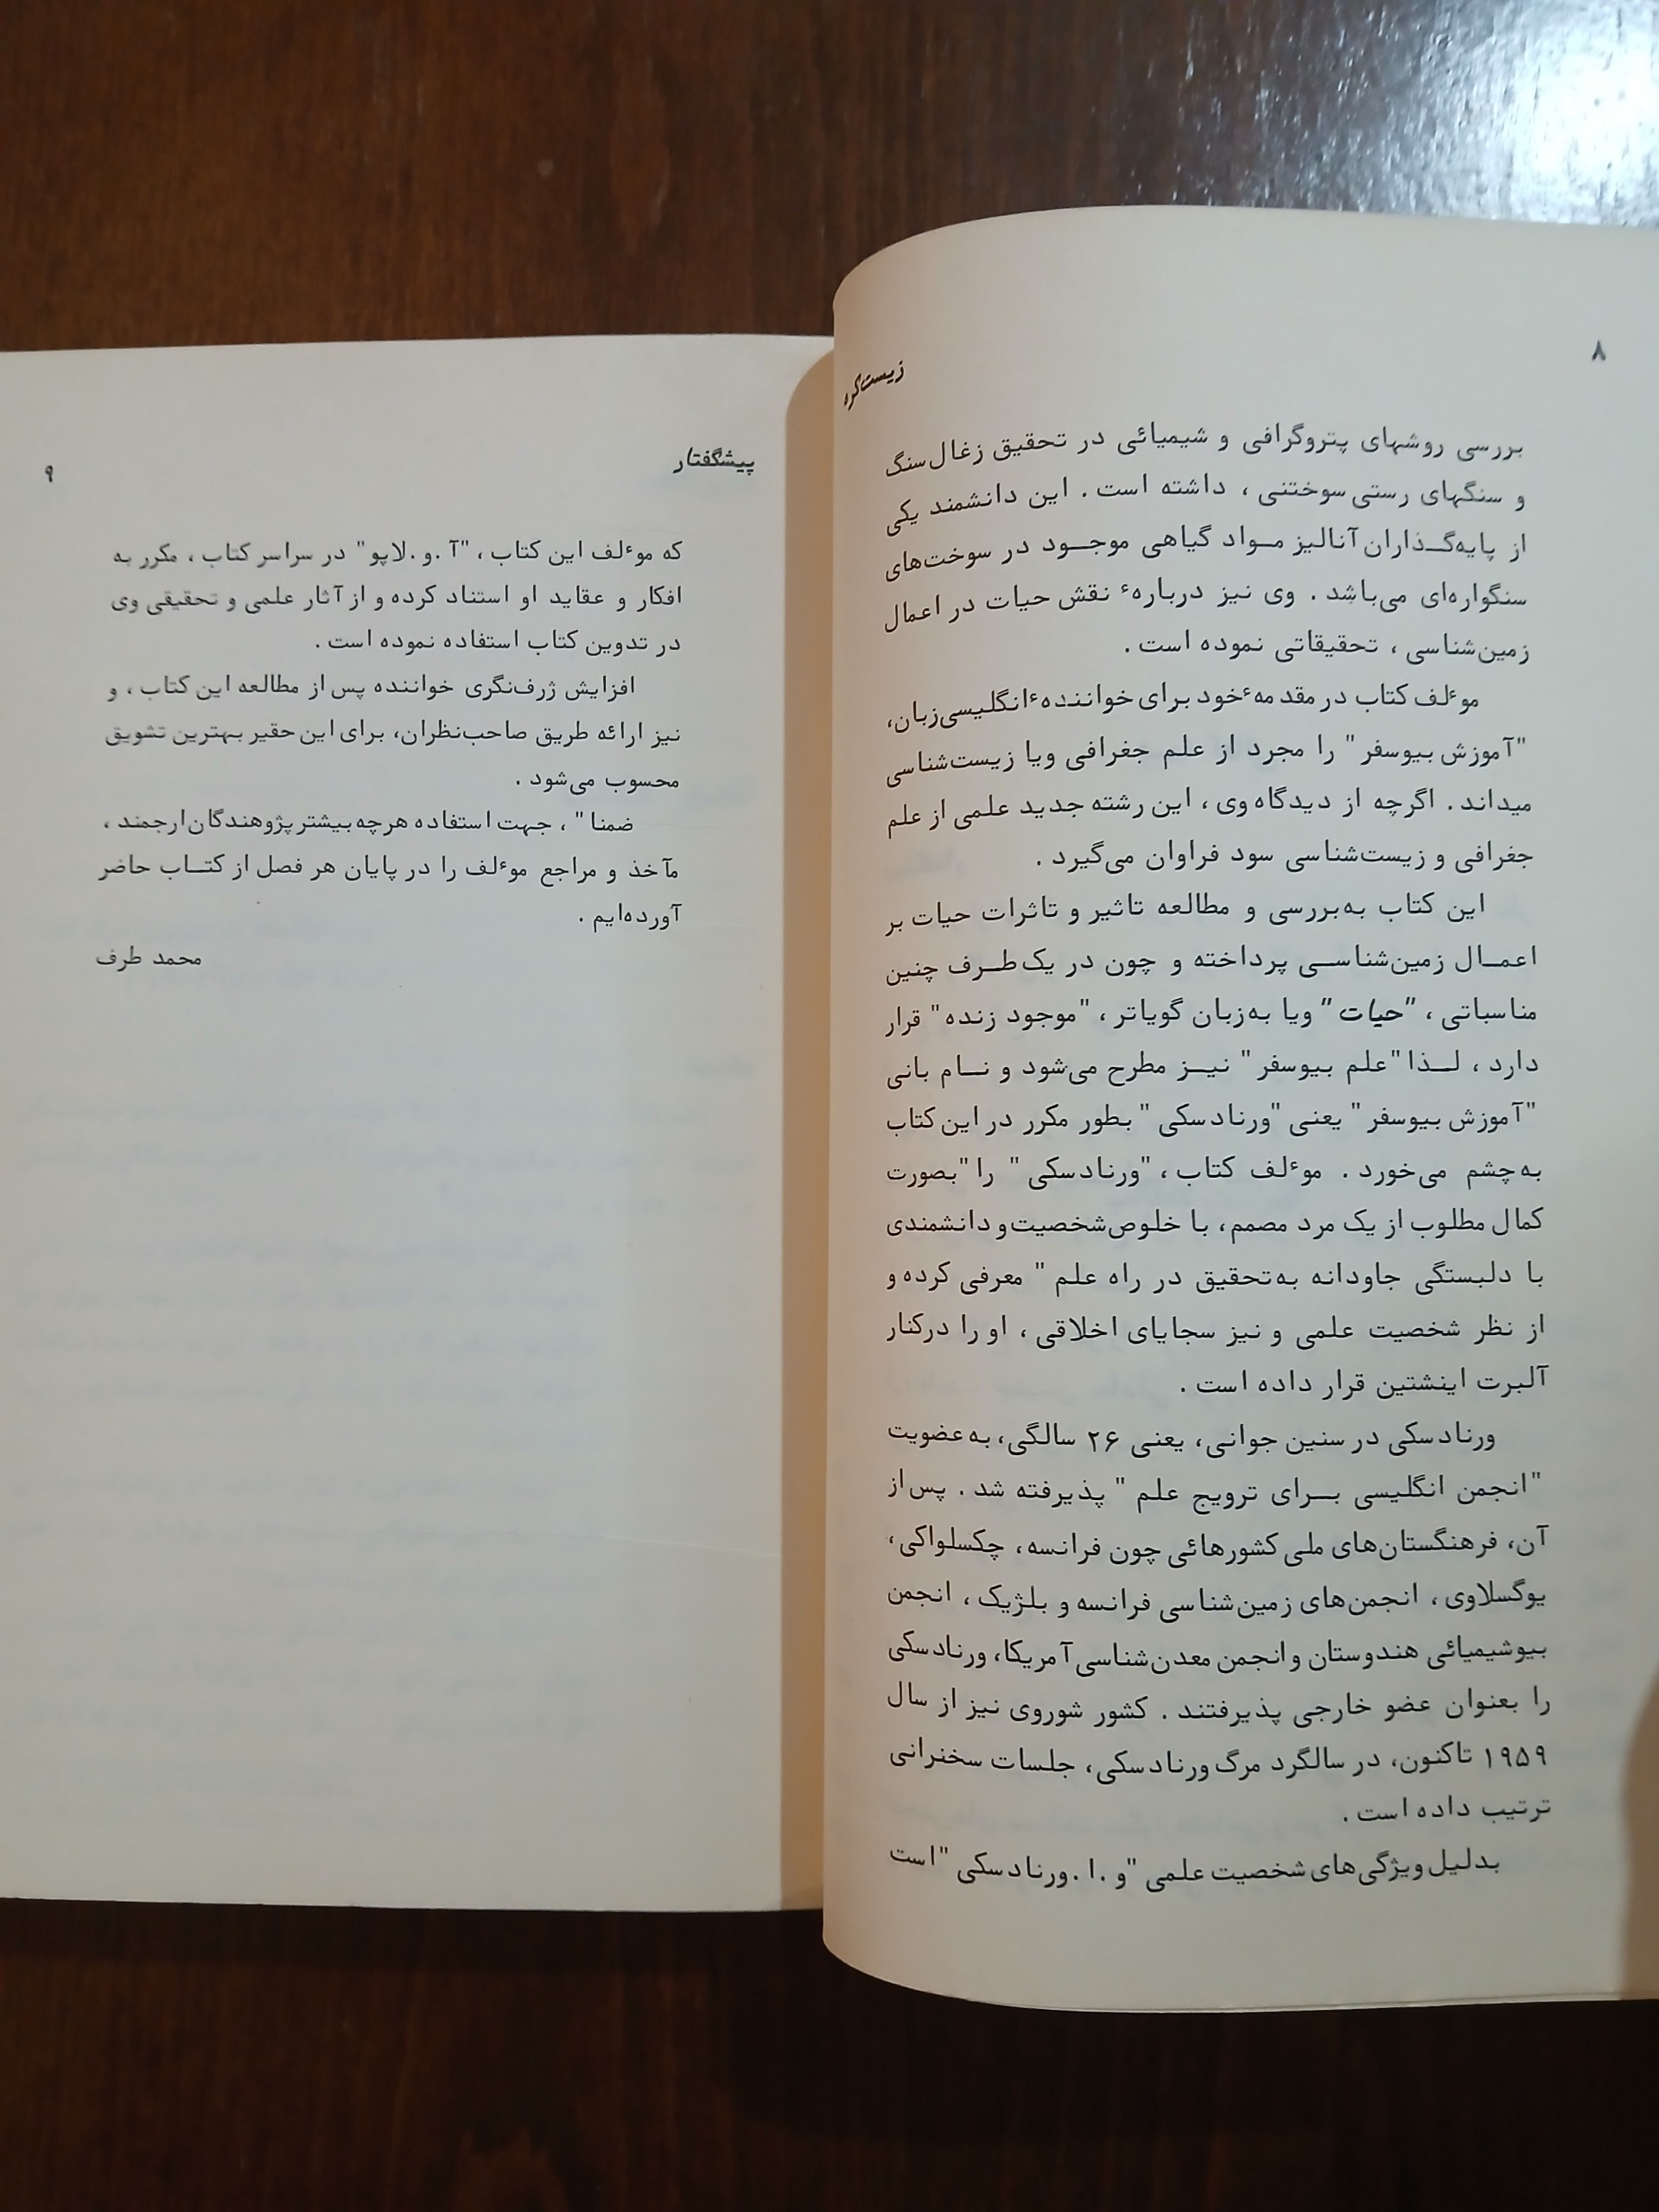 ۸
زیست‌کره
بررسی روشهای پتروگرافی و شیمیائی در تحقیق زغال‌سنگ
و سنگهای رستی سوختنی ، داشته است . این دانشمند یکی
از پایه‌گـذاران آنالیز مـواد گیاهی موجـود در سوخت‌های
سنگواره‌ای می‌باشد . وی نیز دربارهٔ نقش حیات در اعمال
زمین‌شناسی ، تحقیقاتی نموده است .
موٴلف کتاب در مقدمهٔ خود برای خوانندهٔ انگلیسی‌زبان،
"آموزش بیوسفر" را مجرد از علم جغرافی ویا زیست‌شناسی
میداند . اگرچه از دیدگاه وی ، این رشته جدید علمی از علم
جغرافی و زیست‌شناسی سود فراوان می‌گیرد .
این کتاب به‌بررسی و مطالعه تاثیر و تاثرات حیات بر
اعمـال زمین‌شناسـی پرداخته و چون در یک‌طـرف چنین
مناسباتی ، "حیات" ویا به‌زبان گویاتر ، "موجود زنده" قرار
دارد ، لـذا "علم بیوسفر" نیـز مطرح می‌شود و نـام بانی
"آموزش بیوسفر" یعنی "ورنادسکی" بطور مکرر در این کتاب
به‌چشم می‌خورد . موٴلف کتاب ، "ورنادسکی" را "بصورت
کمال مطلوب از یک مرد مصمم، با خلوص‌شخصیت‌و دانشمندی
با دلبستگی جاودانه به‌تحقیق در راه علم" معرفی کرده و
از نظر شخصیت علمی و نیز سجایای اخلاقی ، او را درکنار
آلبرت اینشتین قرار داده است .
ورنادسکی در سنین جوانی، یعنی ۲۶ سالگی، به‌عضویت
"انجمن انگلیسی بـرای ترویج علم" پذیرفته شد . پس‌از
آن، فرهنگستان‌های ملی کشورهائی چون فرانسه، چکسلواکی،
یوگسلاوی ، انجمن‌های زمین‌شناسی فرانسه و بلژیک ، انجمن
بیوشیمیائی هندوستان وانجمن معدن‌شناسی آمریکا، ورنادسکی
را بعنوان عضو خارجی پذیرفتند . کشور شوروی نیز از سال
۱۹۵۹ تاکنون، در سالگرد مرگ ورنادسکی، جلسات سخنرانی
ترتیب داده است .
بدلیل ویژگی‌های شخصیت علمی "و .ا .ورنادسکی" است
پیشگفتار
۹
که موٴلف این کتاب ، "آ .و .لاپو" در سراسر کتاب ، مکرر به
افکار و عقاید او استناد کرده و از آثار علمی و تحقیقی وی
در تدوین کتاب استفاده نموده است .
افزایش ژرف‌نگری خواننده پس از مطالعه این کتاب ، و
نیز ارائه طریق صاحب‌نظران، برای این حقیر بهترین تشویق
محسوب می‌شود .
ضمنا" ، جهت استفاده هرچه بیشتر پژوهندگان ارجمند ،
مآخذ و مراجع موٴلف را در پایان هر فصل از کتـاب حاضر
آورده‌ایم .
محمد طرف